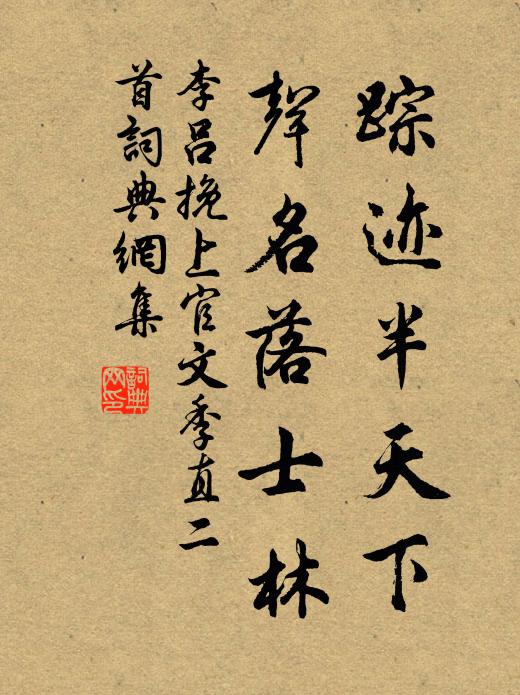 踪迹半天下
聲名落士林
李吕挽上官文季直二
首詞典網集
詞典网印